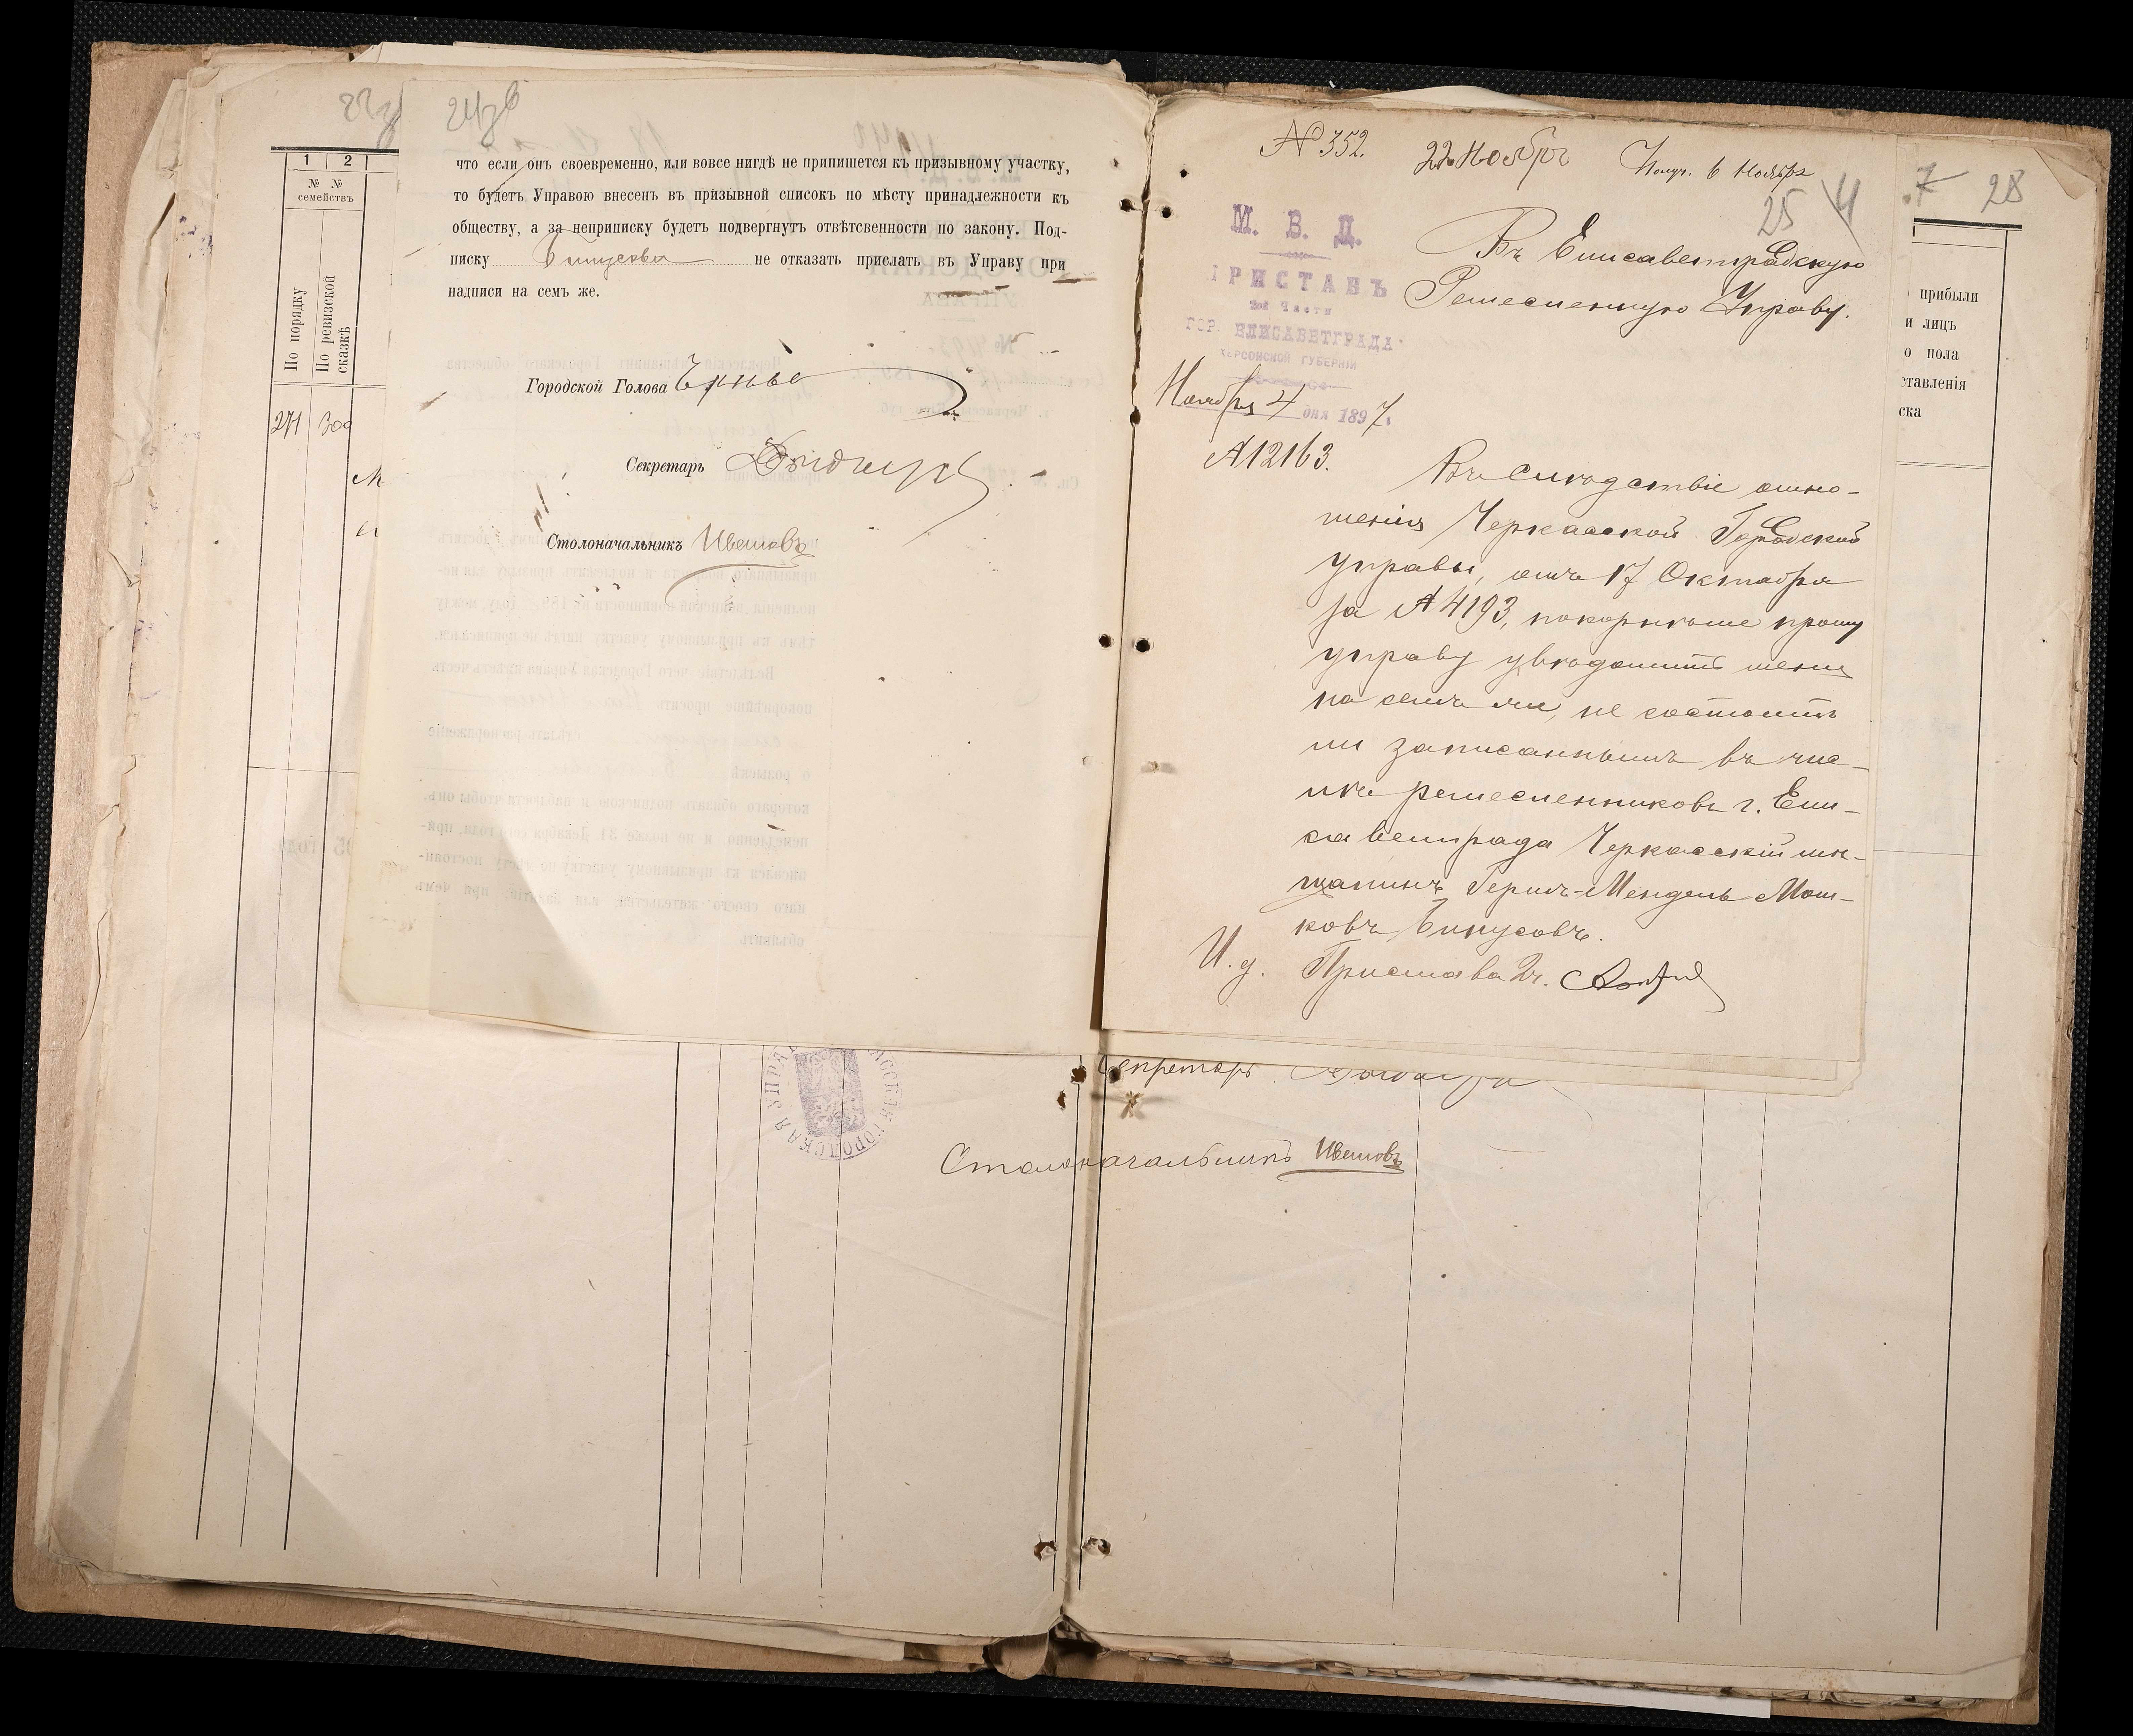 24зв
1 2
№ №
семействъ
По порядку
По ревизской
сказкѣ
271 300
что если онъ своевременно, или вовсе нигдѣ не припишется къ призывному участку,
то будетъ Управою внесенъ въ призывной списокъ по мѣсту принадлежности къ
обществу, а за неприписку будетъ подвергнутъ отвѣтсвенности по закону. Под-
писку Бинусова не отказать прислать въ Управу при
надписи на семъ же.
Городской Голова
Секретарь
Столоначальникъ Ивановъ
УПРАВА ЧЕРКАССКАЯ ГОРОДСКАЯ
Секретарь
Столоначальникъ Ивановъ
№ 352. 22 Ноября Получ. 6 Ноября
25
28
М. В. Д.
ПРИСТАВЪ
2й Части
ГОР. ЕЛИСАВЕТГРАДА
ХЕРСОНСКОЙ ГУБЕРНІИ
Ноября 4 дня 1897.
№ 12163.
Въ Елисаветградскую
Ремесленную Управу.
Въ слѣдствіе отно-
шенія Черкасской Городской
управы, отъ 17 Октября
за № 4193, покорнѣйше прошу
управу увѣдомить меня
на семъ же, не состоитъ
ли записаннымъ въ чис-
лѣ ремесленниковъ г. Ели-
саветграда Черкасскій мѣ-
щанинъ Гершъ-Мендель Мош-
ковъ Бинусовъ.
И. д. Пристава 2 ч.
прибыли
и лицъ
о пола
ставленія
ска